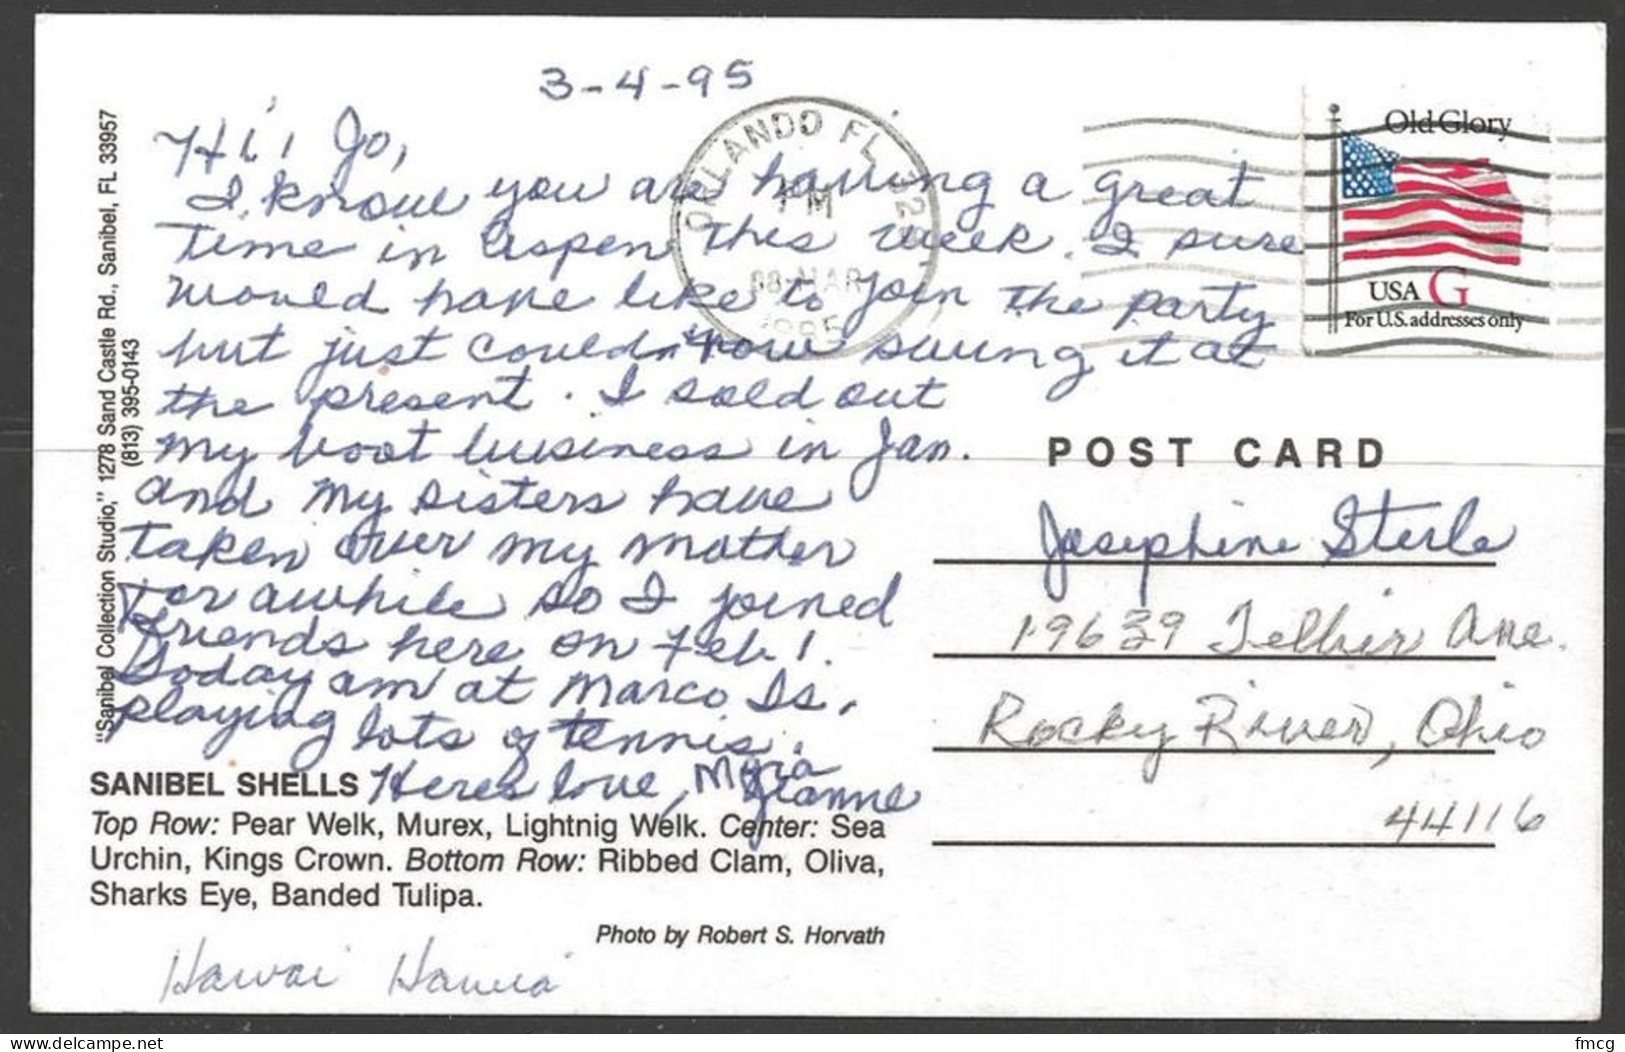 3-4-95
Hi! Jo,
I know you are having a great
time in Aspen this week. I sure
would have like to join the party
but just couldn't now swing it at
the present. I sold out
my boat business in Jan.
and my sisters have
taken over my mother
for awhile so I joined
friends here on Feb 1.
Today am at Marco Is.
playing lots of tennis.
Heres love, Myra
Jeanne
"Sanibel Collection Studio," 1278 Sand Castle Rd., Sanibel, FL 33957
(813) 395-0143
SANIBEL SHELLS
Top Row: Pear Welk, Murex, Lightnig Welk. Center: Sea
Urchin, Kings Crown. Bottom Row: Ribbed Clam, Oliva,
Sharks Eye, Banded Tulipa.
Photo by Robert S. Horvath
Hawai
ORLANDO FL 328
PM
08 MAR
1995
Old Glory
USA G
For U.S. addresses only
POST CARD
Josephine Sterle
19639 Telbir Ave.
Rocky River, Ohio
44116
delcampe.net
fmcg